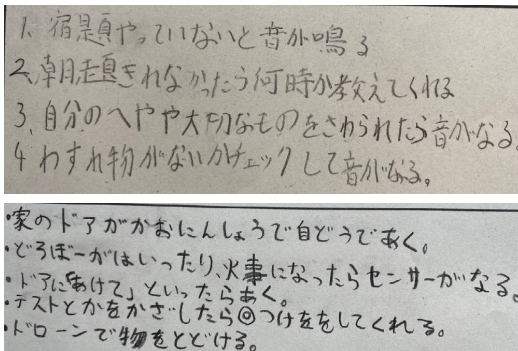 1、宿題やっていないと音が鳴る
2、朝起きれなかったら何時か教えてくれる
3、自分のへやや大切なものをさわられたら音がなる。
4 わすれ物がないかチェックして音がなる。
・家のドアがかおにんしょうで自どうであく。
・どろぼーがはいったり、火事になったらセンサーがなる。
・ドアに「あけて」といったらあく。
・テストとかをかざしたら◎つけををしてくれる。
・ドローンで物をとどける。